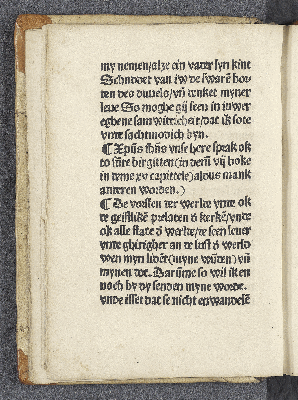 my nemen/alze ein vater syn kint
Schuwet van iw de swarē bor
den des duuels/vñ denket myner
leue So moghe gij seen in iwer
eghene sam witticheit/dat ik sote
vnde sachtmodich byn.
¶ Xpūs ihūs vnse here sprak ok
to sūte birgitten (in demē vi boke
in deme xv capittele) aldus mank
anderen worden.)
¶ De vorsten der werlt vnde ok
de geistlikē prelaten d' kerkē/vnde
ok alle state d' werlt/de seen seuer
vnde ghirigher an de lust d' werld
wen myn lidēt (myne wūden) vñ
mynen dot. Darūme so wil ik en
noch by dy senden myne worde.
vnde isset dat se nicht en wandelē